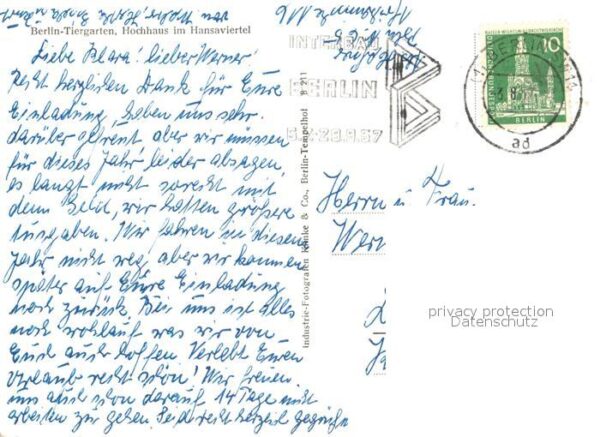 Berlin-Tiergarten, Hochhaus im Hansaviertel
Liebe Klara! lieber Werner!
Recht herzlichen Dank für Eure
Einladung, haben uns sehr
darüber gefreut aber wir müssen
für dieses Jahr leider absagen,
es langt nicht so recht mit
dem Geld, wir hatten größere
Ausgaben. Wir fahren in diesem
Jahr nicht weg, aber wir kommen
später auf Eure Einladung
noch zurück. Bei uns ist alles
noch wohlauf was wir von
Euch auch hoffen. Verlebt Euren
Urlaub recht schön! Wir freuen
uns auch schon darauf 14 Tage nicht
arbeiten zu gehen. Seid recht herzlich gegrüßt
von
Industrie-Fotografen Klinke & Co., Berlin-Tempelhof B 211
INTERBAU
BERLIN
57
BERLIN
10
BERLIN
ad
Herrn u. Frau.
Wer
privacy protection
Datenschutz